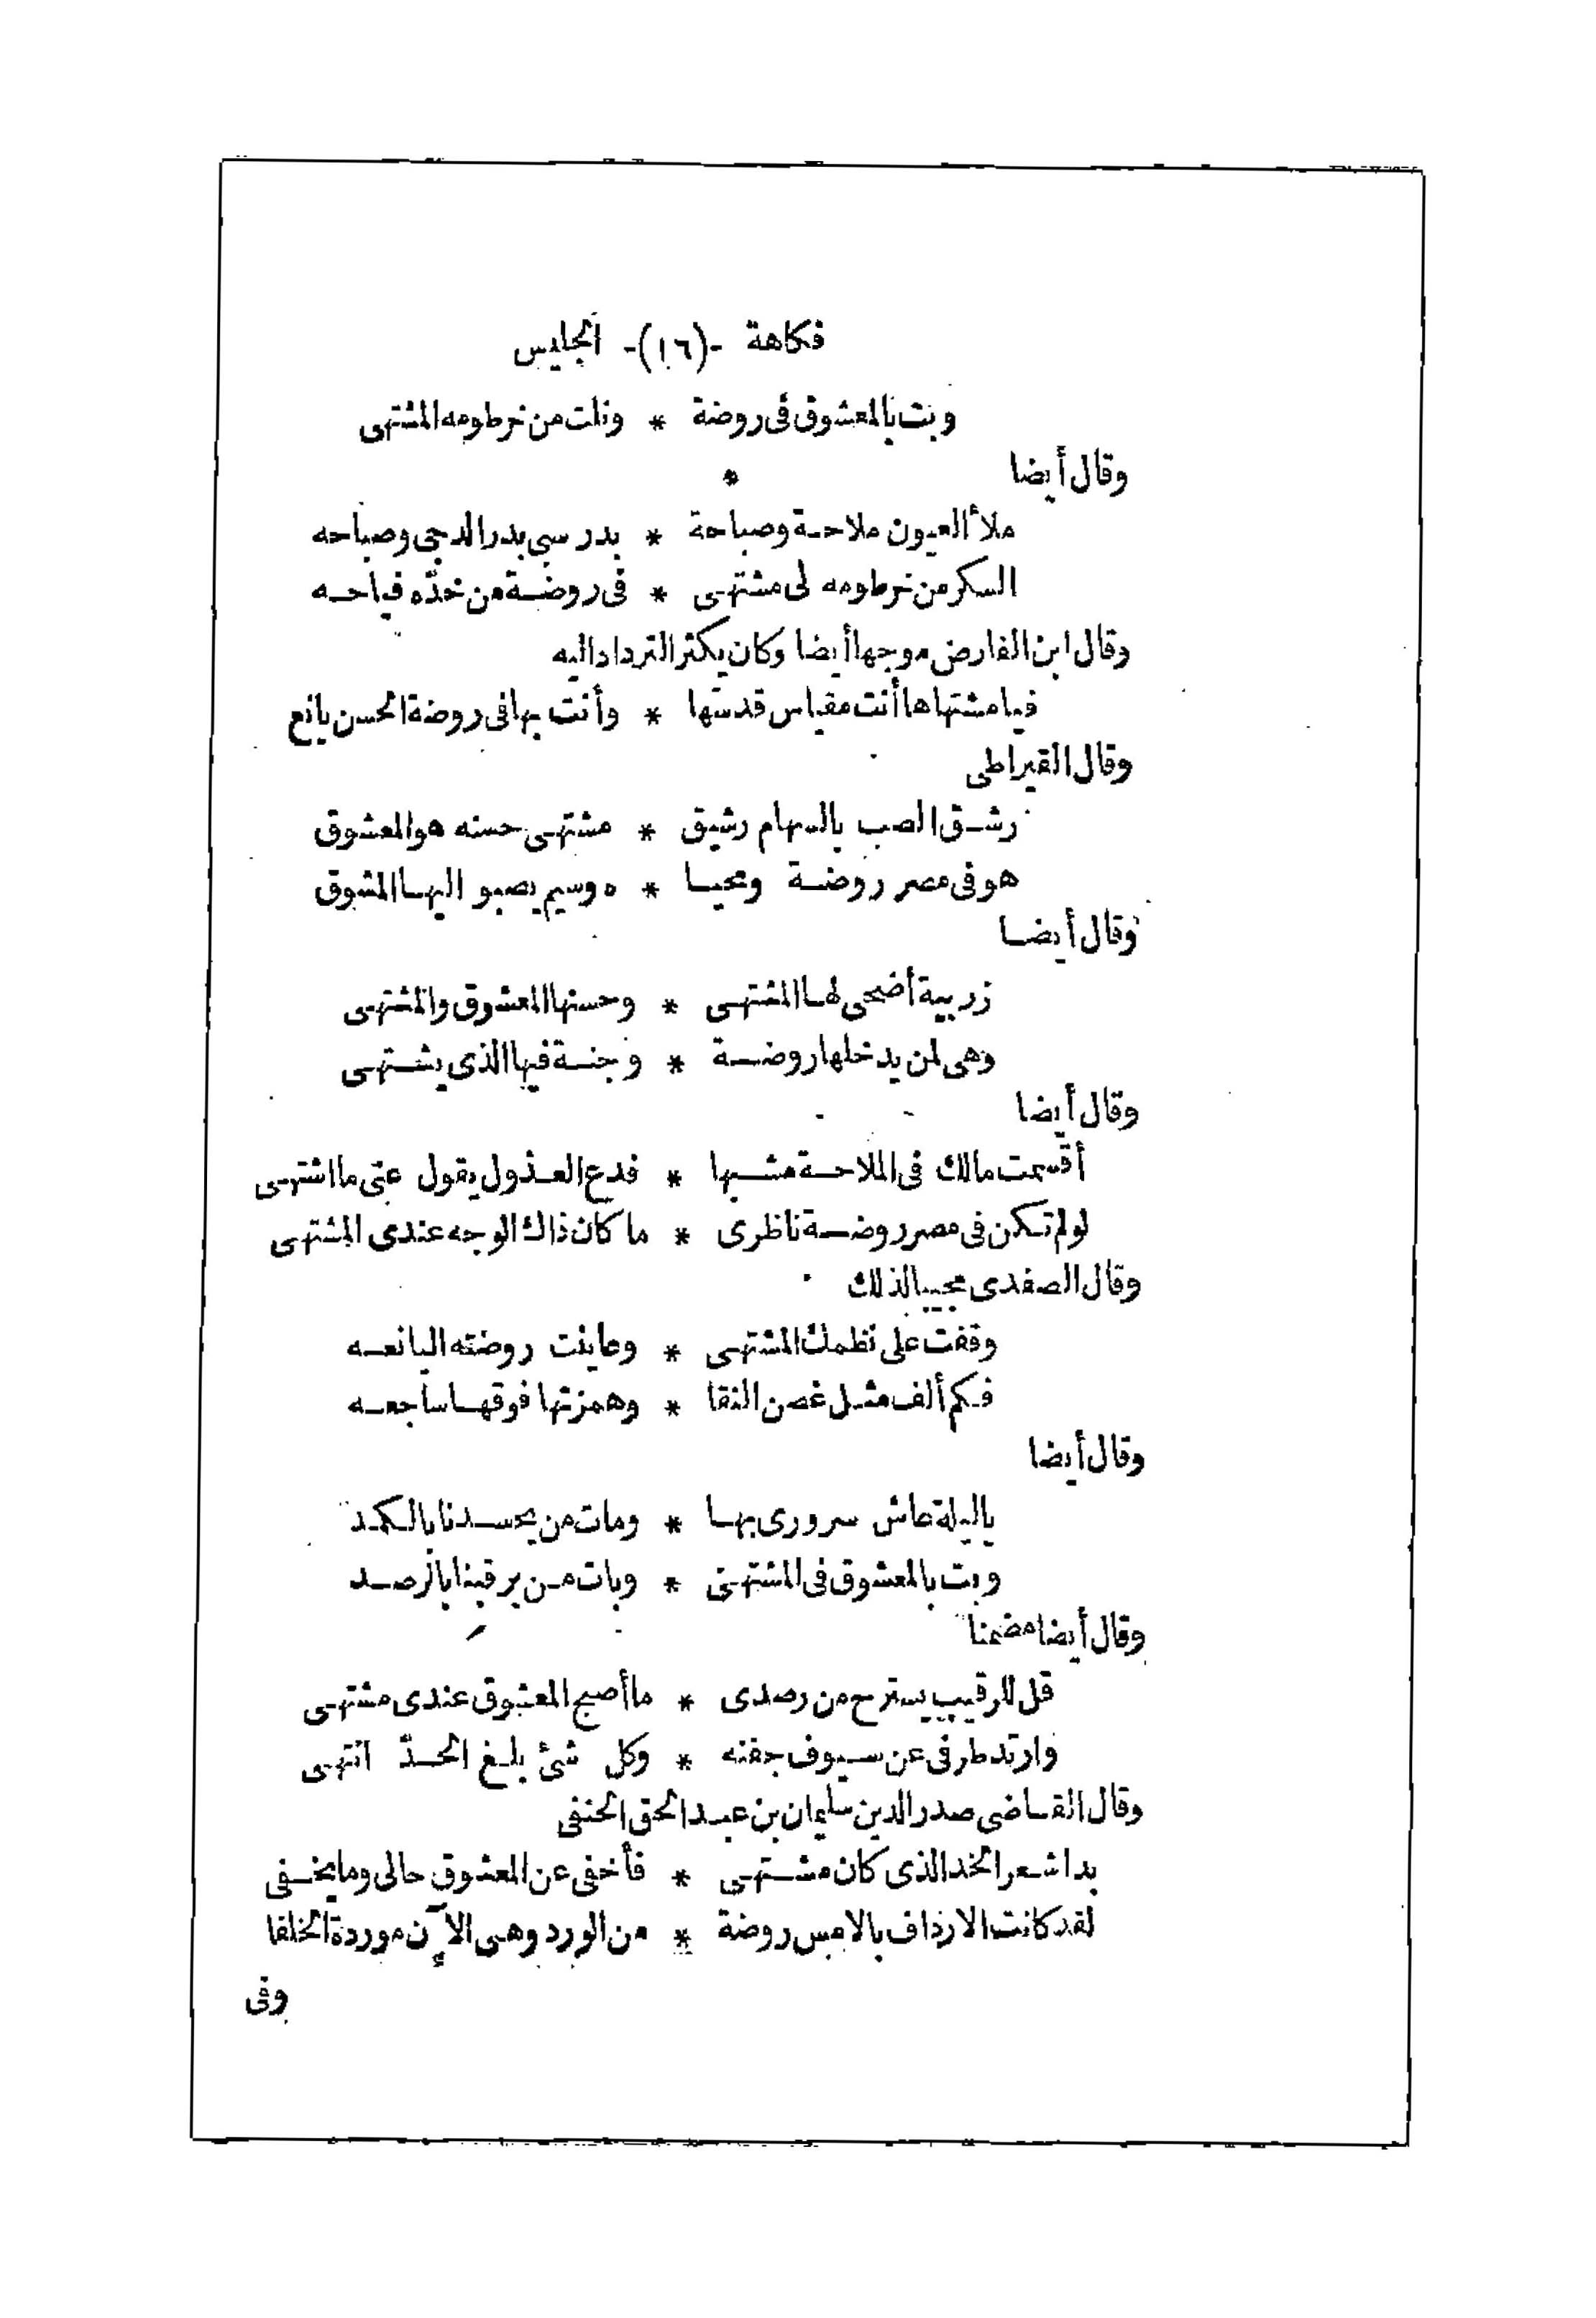 فكاهة -(١٦)- الجليس
وبت بالمعشوق فى روضة * ونلت من خرطومه المشتهى
وقال أيضا
ملأ العيون ملاحة وصباحة * بدر سبى بدر الدجى وصباحه
السكر من خرطومه لى مشتهى * فى روضة من خدّه فياحه
وقال ابن الفارض موجها أيضا وكان يكثر الترداد اليه
فيا مشتهاها أنت مقياس قدسها * وأنت بها فى روضة الحسن يانع
وقال القيراطى
رشق الصب بالسهام رشيق * مشتهى حسنه هو المعشوق
هو فى مصر روضة ومحيا * ه وسيم يصبو اليها المشوق
وقال أيضا
زربية أضحى لها المشتهى * وحسنها المعشوق والمشتهى
وهى لمن يدخلها روضة * وجنة فيها الذى يشتهى
وقال أيضا
أقسمت مالك فى الملاحة مشبها * فدع العذول يقول عنى ما اشتهى
لو لم تكن فى مصر روضة ناظرى * ما كان ذاك الوجه عندى المشتهى
وقال الصفدى مجيبا لذلك
وقفت على نظمك المشتهى * وعاينت روضته اليانعه
فكم ألف مثل غصن النقا * وهمزتها فوقها ساجعه
وقال أيضا
يا ليلة عاش سرورى بها * ومات من يحسدنا بالكمد
وبت بالمعشوق فى المشتهى * وبات من يرقبنا بالرصد
وقال أيضا مضمنا
قل للرقيب يسترح من رصدى * ما أصبح المعشوق عندى مشتهى
وارتد طرفى عن سيوف جفنه * وكل شئ بلغ الحدّ انتهى
وقال القاضى صدر الدين سليمان بن عبد الحق الحنفى
بدا شعر الخد الذى كان مشتهى * فأخفى عن المعشوق حالى وما يخفى
لقد كانت الارداف بالامس روضة * من الورد وهى الآن موردة الخلفا
وفى